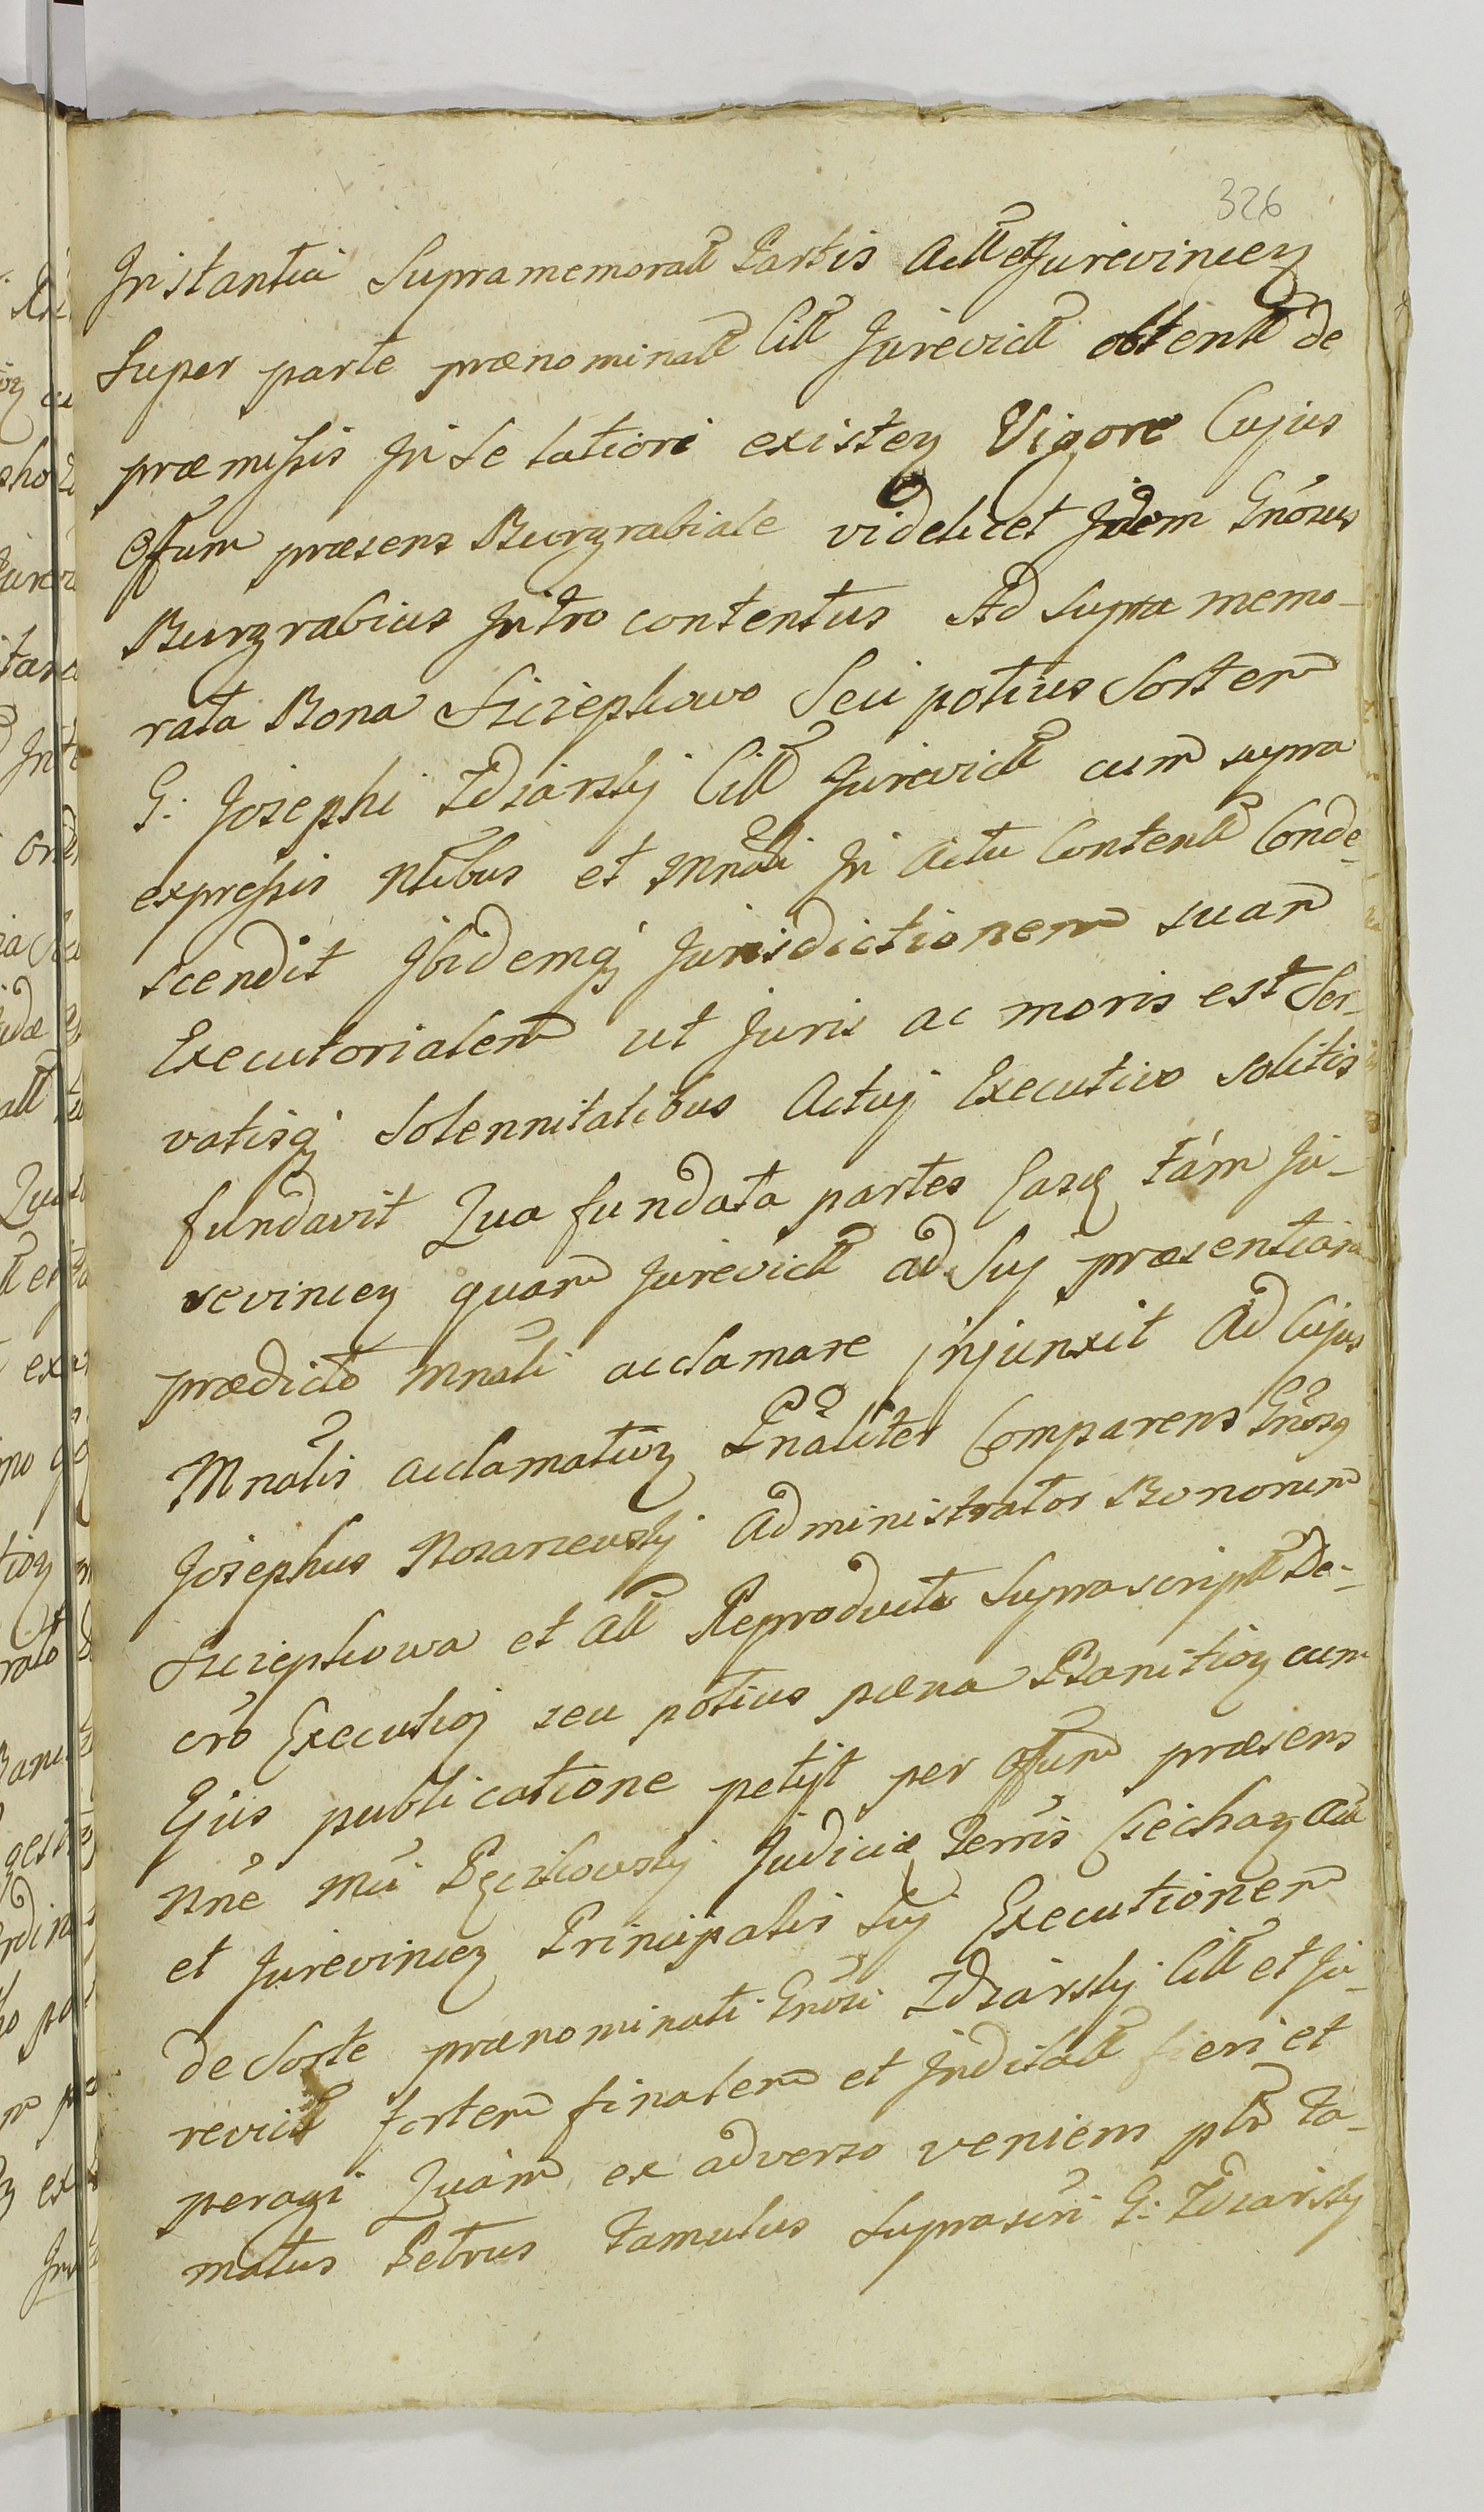 326
Instantia Supramemorat Partis Act et Jurevincen
super parte prænominat Citt Jurevict obtent de
præmissis In se latiori existen Vigore Cujus
Offum præsens Burgrabiale videlicet Idem Gnosus
Burgrabius Intro contentus Ad supra memo-
rata Bona Szczepkowo Seu potius Sortem
G: Josephi Zdziarsky Citt Jurevict cum supra
expressis Nbilibus et Mnrli In actu Content Conde-
scendit Ibidemq Jurisdictionem suam
Executorialem ut Juris ac moris est Ser-
vatisq Solennitatibus Actuj Executivo solitis
fundavit Qua fundata partes Easq tám Ju-
revincen quam Jurevict ad Suj præsentiam
prædicto Mnrli acclamare injunxit Ad Cujus
Mnrlis acclamation Prnaliter Comparens Gnosq
Josephus administrator Bonorum
Szczepkowa et Act Reproducto Suprascript De-
cro Execution seu potius pæna Banition cum
Ejus publicatione petijt per Offum præsens
Nne Mci Judicis Terris Ciechan Act
et Jurevincen Principalis Suj Executionem
de Sorte prænominati Gnosi Zdziarsky Citt et Ju-
revict sortem finalem et Indilat fieri et
peragi Quám ex adverso veniens plr Fa-
matus Petrus Famulus Suprascri G: Zdziarsky